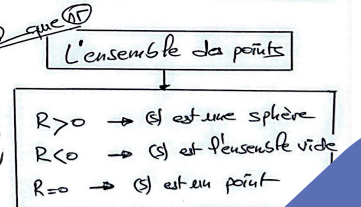 que
L'ensemble des points
R>0 → (s) est une sphère
R<0 → (s) est l'ensemble vide
R=0 → (s) est un point